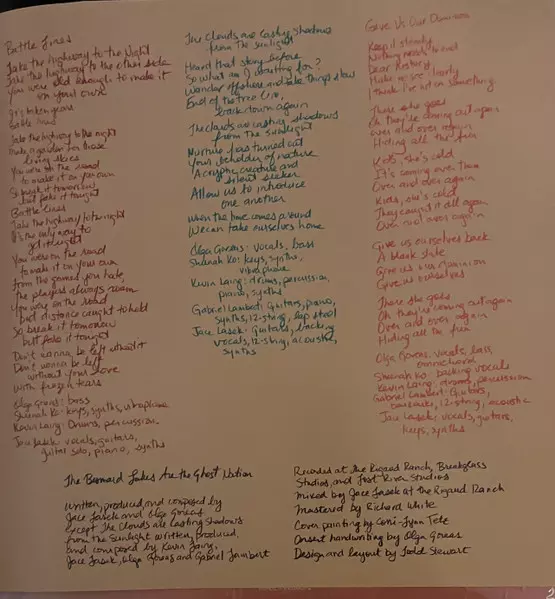 Battle Lines
Take the highway to the Night
Take the highway to the other side
You were old enough to make it
on your own
It's taken years
Battle lines
Take the highway to the night
living skies
You were on the road
to make it on your own
So break it tomorrow
but fake it tonight
Battle lines
Take the highway tonight
It's the only way to
get it right
You were on the road
to make it on your own
from the games you hate,
the players always
You were on the road
and distance caught to hold
So break it tomorrow
but fake it tonight
Don't wanna be left without it
Don't wanna be left
without your love
With frozen tears
Olga Goreas: bass
Sheenah Ko: keys, synths, vibraphone
Kevin Laing: Drums, percussion,
Jace Lasek: vocals, guitars,
guitar solo, piano, synths
The Clouds are Casting Shadows
from the Sunlight
Heard that story before
So what am I waiting for?
Wonder offshore and take things slow
End of the tree line,
back down again
The clouds are casting shadows
from the sunlight
Nurture has turned out
Your beholder of nature
A cryptic creature and
silent seeker
Allow us to introduce
one another
When the time comes around
We can take ourselves home
Olga Goreas: vocals, bass
Sheenah Ko: keys, synths,
vibraphone
Kevin Laing: drums, percussion,
piano, synths
Gabriel Lambert: Guitars, piano,
synths, 12-string, lap steel
Jace Lasek: Guitars, backing
vocals, 12-string, acoustic,
synths
Give Us Our Dominion
Keep it steady
Nothing needs to end
Dear Restory
I think I've let on something
There she goes
Oh they're coming out again
Over and over again
Hiding all the fun
Kids, she's cold
It's coming over them
Over and over again
Kids, she's cold
They caught it all again
Over and over again
Give us ourselves back
A blank slate
Give us our dominion
Give us ourselves
There she goes
Oh they're coming out again
Over and over again
Hiding all the fun
Olga Goreas: vocals, bass,
omnichord
Sheenah Ko: backing vocals
Kevin Laing: drums, percussion
Gabriel Lambert: Guitars,
bouzouki, 12-string, acoustic
Jace Lasek: vocals, guitars,
keys, synths
The Besnard Lakes Are the Ghost Nation
written, produced and composed by
Jace Lasek and Olga Goreas
except The Clouds are Casting Shadows
from the Sunlight written, produced,
and composed by Kevin Laing,
Jace Lasek, Olga Goreas and Gabriel Lambert
Recorded at the Rigaud Ranch, Breakglass
Studios, and Lost River Studios
mixed by Jace Lasek at the Rigaud Ranch
mastered by Richard White
Cover painting by Corri-Lynn Tetz
Insert handwriting by Olga Goreas
Design and layout by Todd Stewart